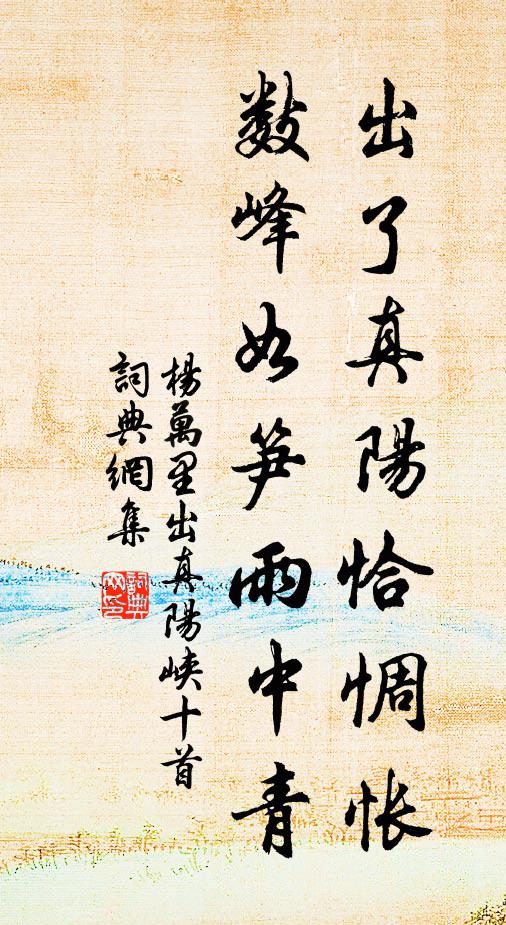 出了真陽恰惆怅
數峰如笋雨中青
楊萬里出真陽峽十首
詞典網集